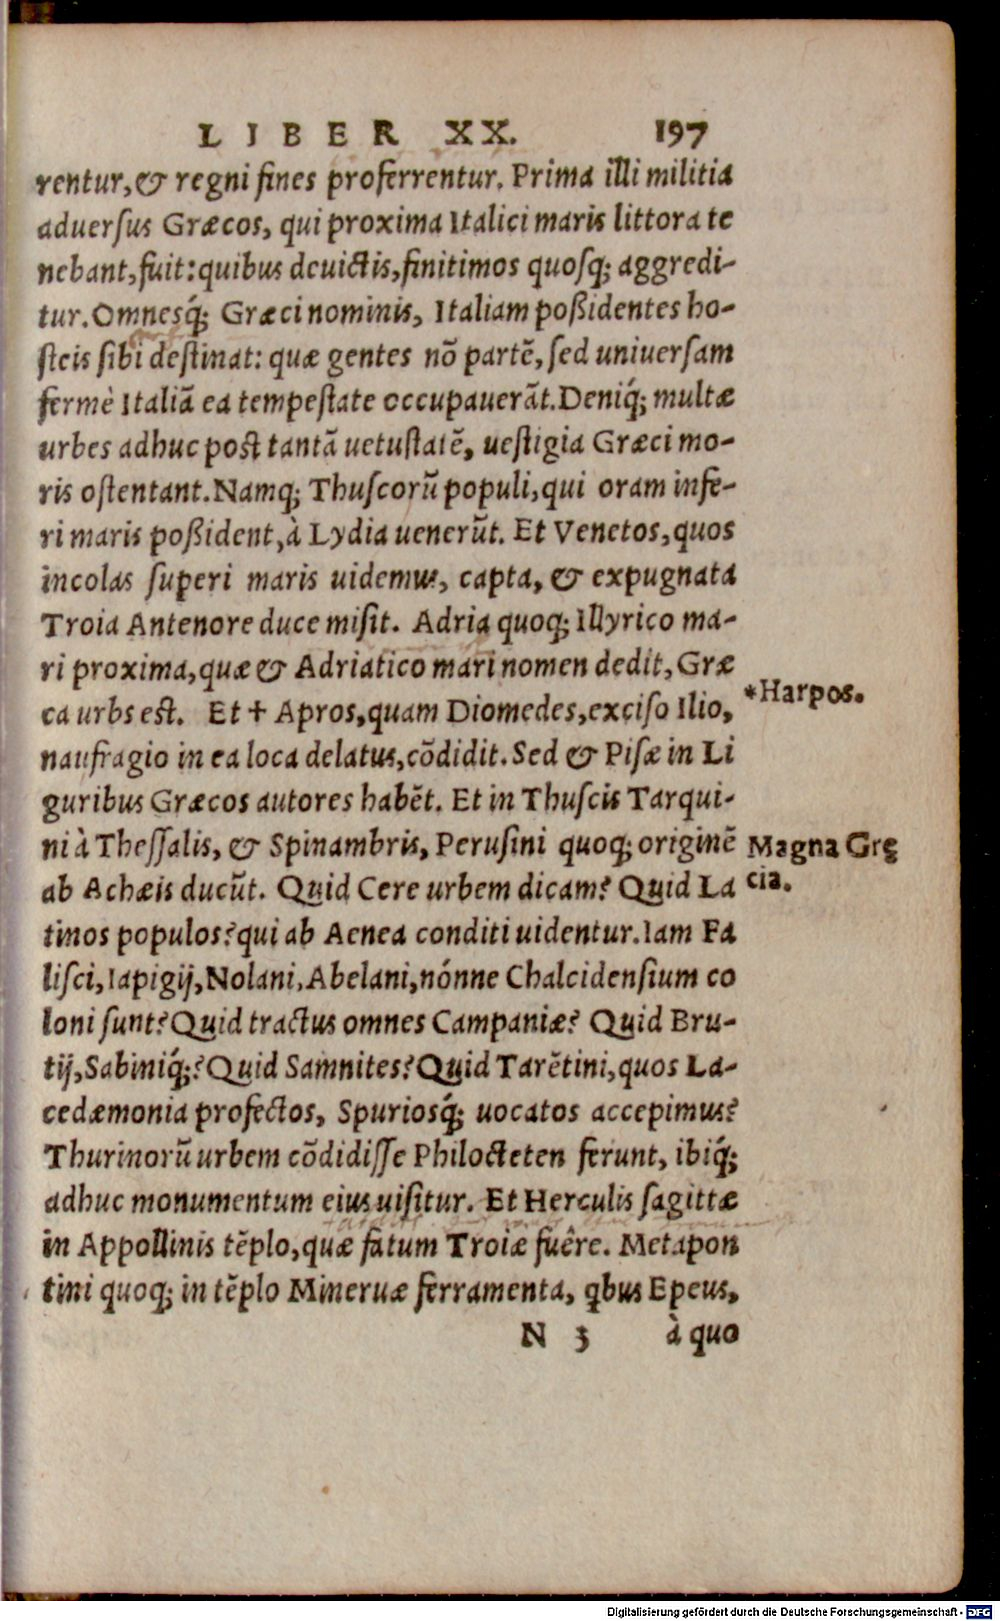 LIBER XX. 197
rentur, & regni fines proferrentur. Prima illi militia
aduersus Græcos, qui proxima Italici maris littora te
nebant, fuit: quibus deuictis, finitimos quosq; aggredi-
tur. Omnesq́; Græci nominis, Italiam poßidentes ho-
steis sibi destinat: quæ gentes nō partē, sed uniuersam
fermè Italiā ea tempestate occupauerāt. Deniq́; multæ
urbes adhuc post tantā uetustatē, uestigia Græci mo-
ris ostentant. Namq; Thuscorū populi, qui oram infe-
ri maris poßident, à Lydia uenerūt. Et Venetos, quos
incolas superi maris uidemus, capta, & expugnata
Troia Antenore duce misit. Adria quoq; Illyrico ma-
ri proxima, quæ & Adriatico mari nomen dedit, Græ
ca urbs est. Et + Apros, quam Diomedes, exciso Ilio,
*Harpos.
naufragio in ea loca delatus, cōdidit. Sed & Pisæ in Li
guribus Græcos autores habēt. Et in Thuscis Tarqui-
ni à Thessalis, & Spinambris, Perusini quoq; originē
Magna Grę
ab Achæis ducūt. Quid Cere urbem dicam? Quid La
cia.
tinos populos? qui ab Aenea conditi uidentur. Iam Fa
lisci, Iapigij, Nolani, Abelani, nónne Chalcidensium co
loni sunt? Quid tractus omnes Campaniæ? Quid Bru-
tij, Sabiniq́;? Quid Samnites? Quid Tarētini, quos La-
cedæmonia profectos, Spuriosq́; uocatos accepimus?
Thurinorū urbem cōdidisse Philocteten ferunt, ibiq́;
adhuc monumentum eius uisitur. Et Herculis sagittæ
in Appollinis tēplo, quæ fatum Troiæ fuêre. Metapon
tini quoq; in tēplo Mineruæ ferramenta, qbus Epeus,
N 3 à quo
Digitalisierung gefördert durch die Deutsche Forschungsgemeinschaft - DFG